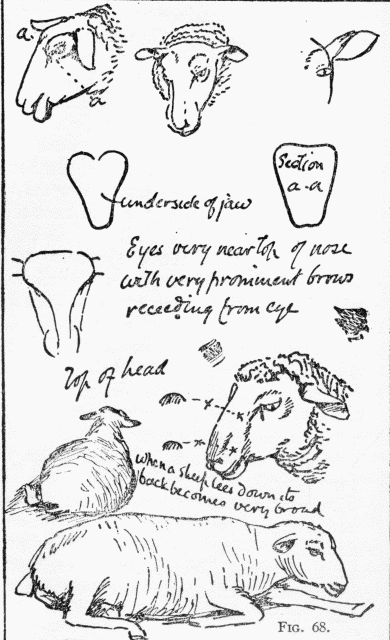 a
a
underside of jaw
Section
a-a
Eyes very near top of nose
with very prominent brows
receeding from eye
Top of head
when a sheep lees down its
back becomes very broad
FIG. 68.